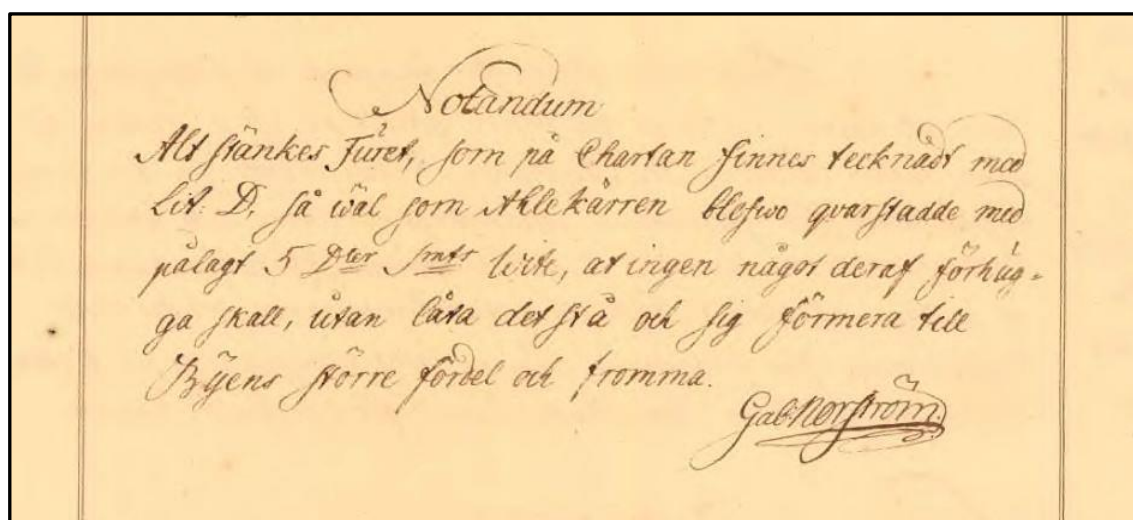 Notandum
Alt stänkes Furet, som på Chartan finnes tecknadt med
Lit: D. så wäl som Ahlekärren blefwo qvarstadde med
pålagt 5 Dler Smts wite, at ingen något deraf förhug-
ga skall, utan låta det stå och sig förmera till
Byens större fördel och fromma.
Gab: Norström.